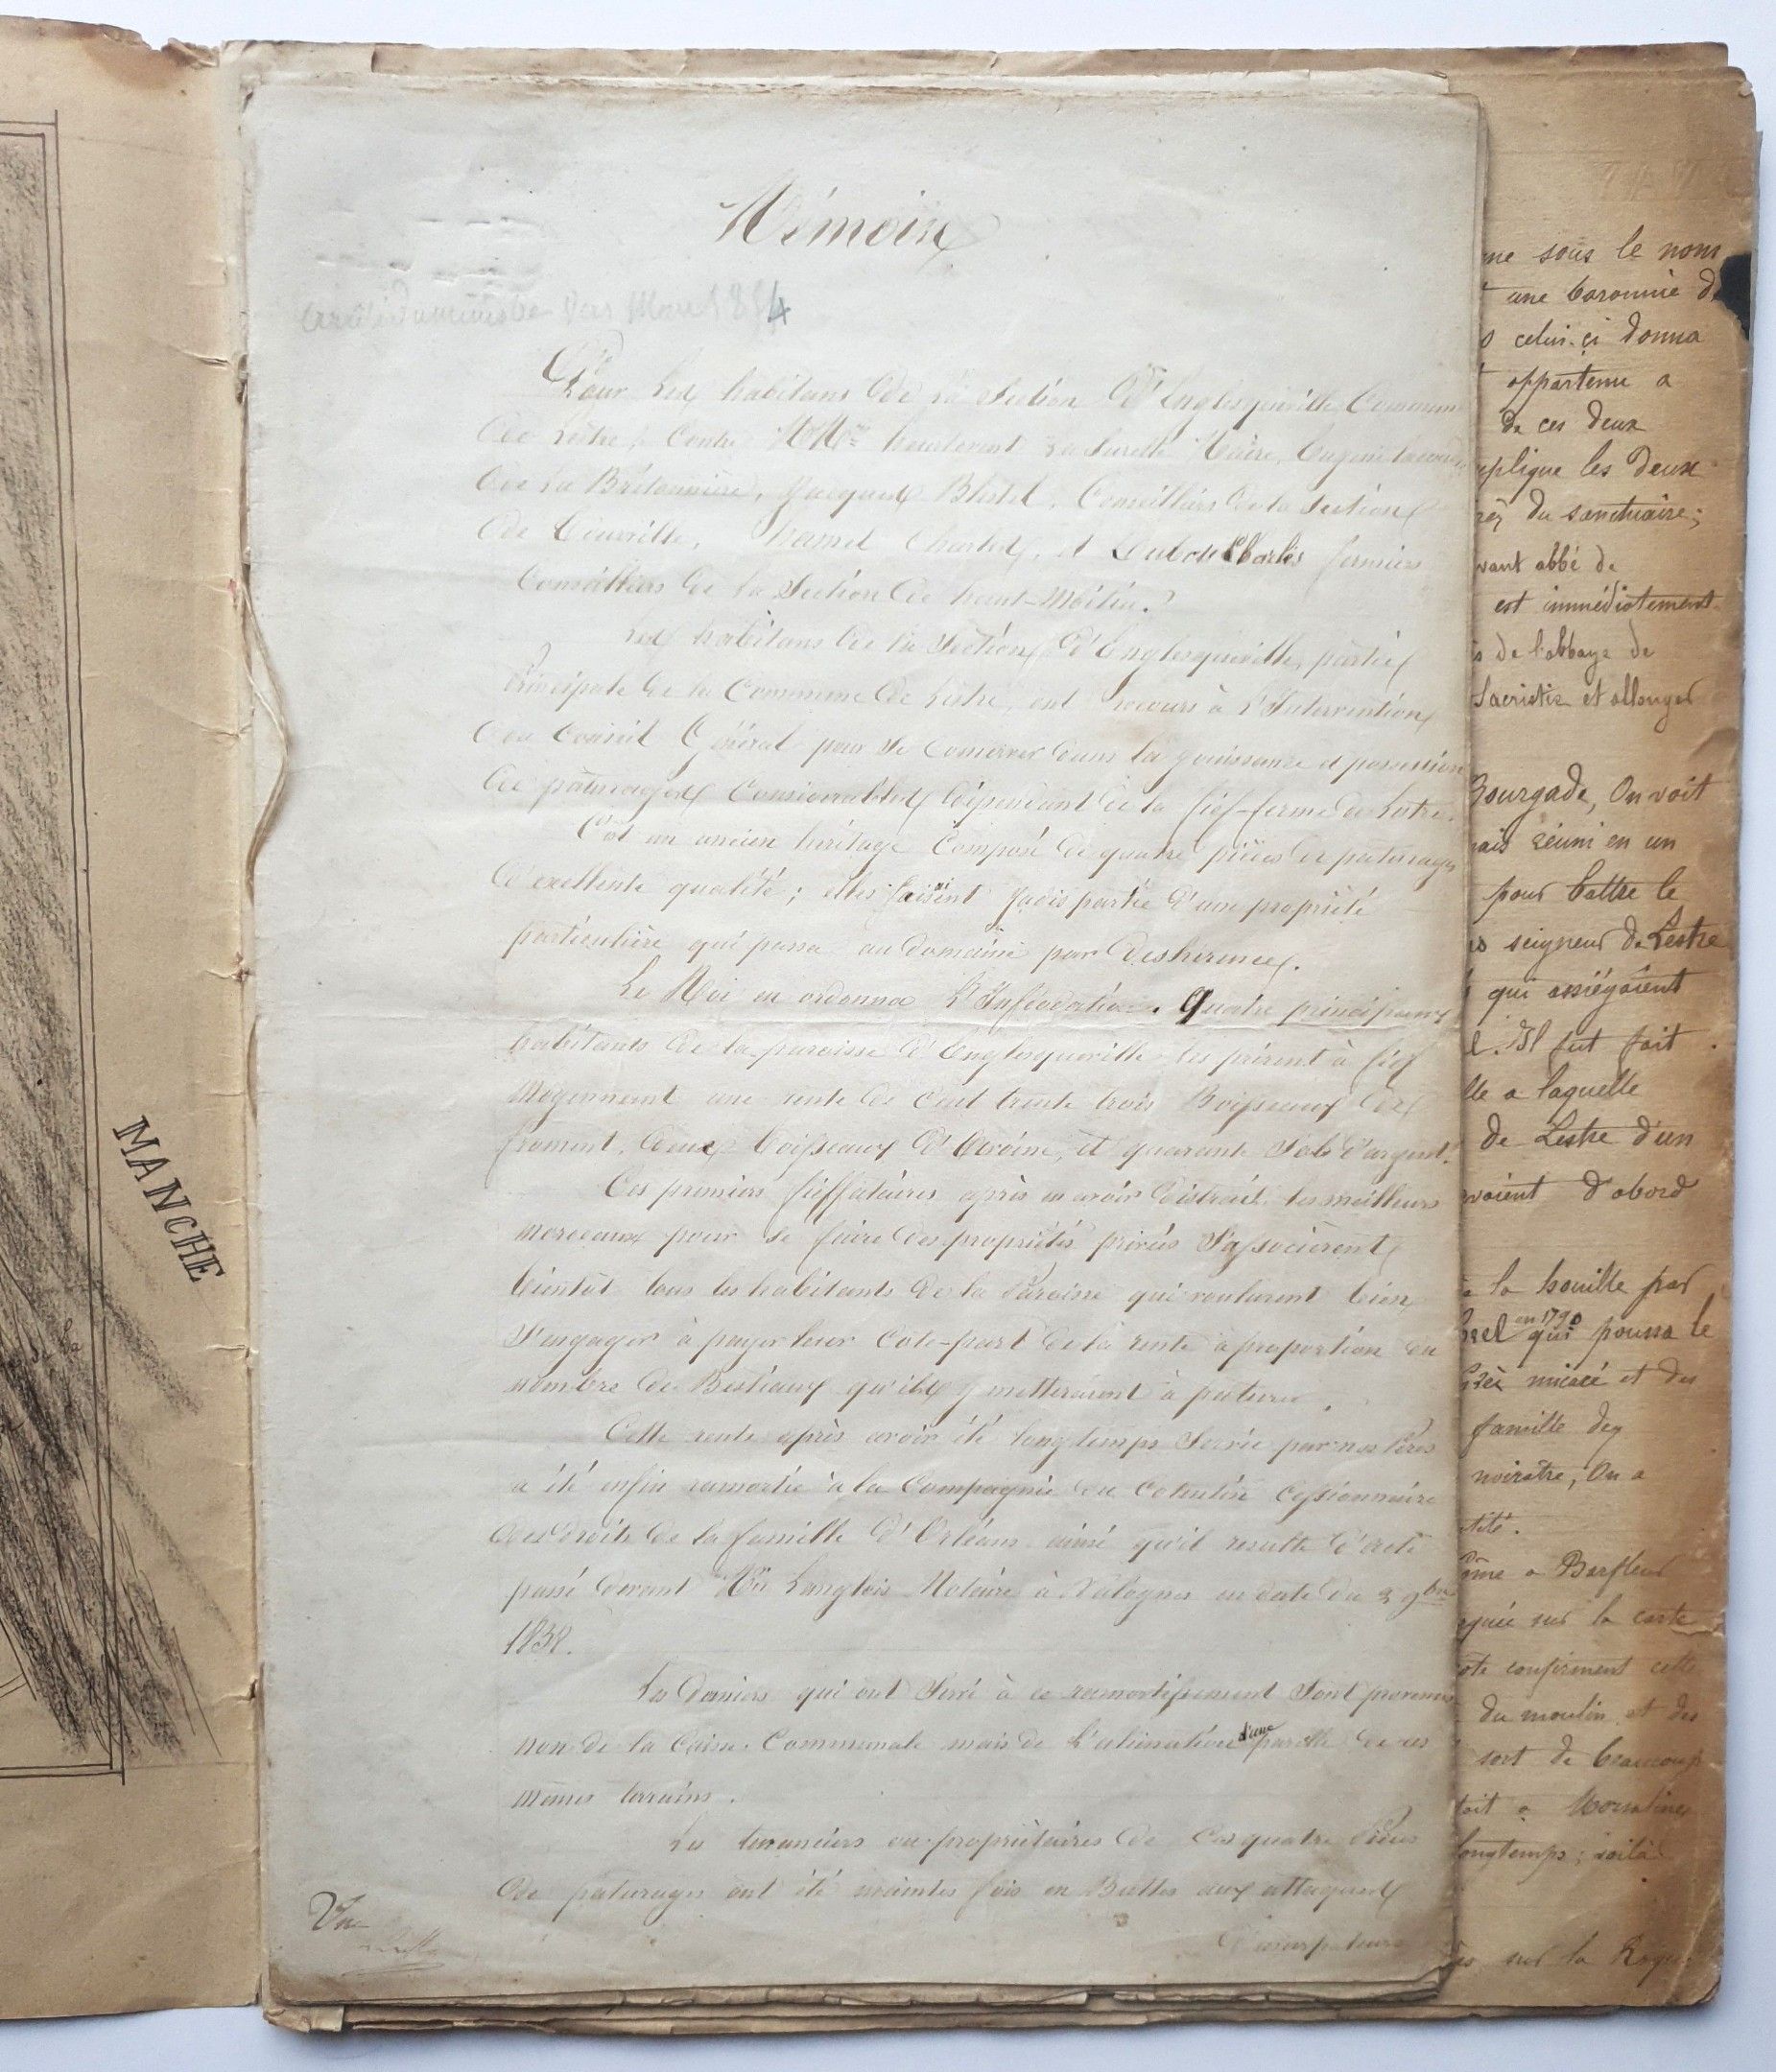 Mémoire
vers Mars 1854
Pour les habitans de la Section d'Englesqueville Commune
de Lestre, Contre MM. Maire, Eugène
de la Bretonnière, Jacques Blestel, Conseillers de la Section
de Hamel Charles, et Dubost Charles fermiers
Conseillers de la Section de haut-Moitié.
Les habitans de la Section d'Englesqueville, partie
Principale de la Commune de Lestre, ont recours à l'Intervention
du Conseil Général pour se Conserver dans la jouissance et possession
de pâturages Considérables dépendant de la fief-ferme de Lestre.
C'est un ancien héritage Composé de quatre pièces de pâturages
d'exellente qualité; elles faisaient Jadis partie d'une propriété
particulière qui passa au Domaine par Desherence.
Le Roi en ordonna l'Inféodation. Quatre principaux
habitants de la paroisse d'Englesqueville les prirent à fief
Moyennant une rente de Cent trente trois Boisseaux de
froment, Deux boisseaux d'Avoine, et quarante Sols d'argent.
Ces premiers fieffataires après en avoir distrait les meilleurs
morceaux pour se faire des propriétés privées S'associèrent
bientôt tous les habitants de la Paroisse qui voulurent bien
S'engager à payer leur Cote-part de la rente à proportion du
nombre de Bestiaux qu'ils y metteraient à pâturer.
Cette rente après avoir été longtemps Servie par nos Pères
a été enfin ramortie à la Compagnie du Cotentin Cessionnaire
des droits de la famille d'Orléans ainsi qu'il resulte d'acte
passé devant Me Langlois Notaire à Valognes en date du 3 9bre
1838.
Les Deniers qui ont Servi à ce ramortissement Sont provenus
non de la Caisse Communale mais de l'aliénation d'une parcelle de ces
mêmes terrains.
Les tenanciers ou propriétaires de Ces quatre Pièces
de paturages ont été maintes fois en Buttes aux attaques
d'usurpateurs
Vu
MANCHE
de la
me sous le nom
une baronnie d
celui-çi donna
appartenu a
de ces deux
xplique les deux
du sanctuaire;
vant abbé de
est immédiatement
de l'abbaye de
Sacristie et allonger
Bourgade, On voit
ais réuni en un
pour battre le
seigneur de Lestre
qui assiégaient
Il fut fait
lle a laquelle
de Lestre d'un
voient d'abord
a la houille par
en 1790
qui poussa le
micacé et des
famille des
noirâtre, On a
tité.
a Barfleur
quée sur la carte
confirment cette
du moulin et des
sort de beaucoup
toit a Morsalines
longtemps; voilà
sur la